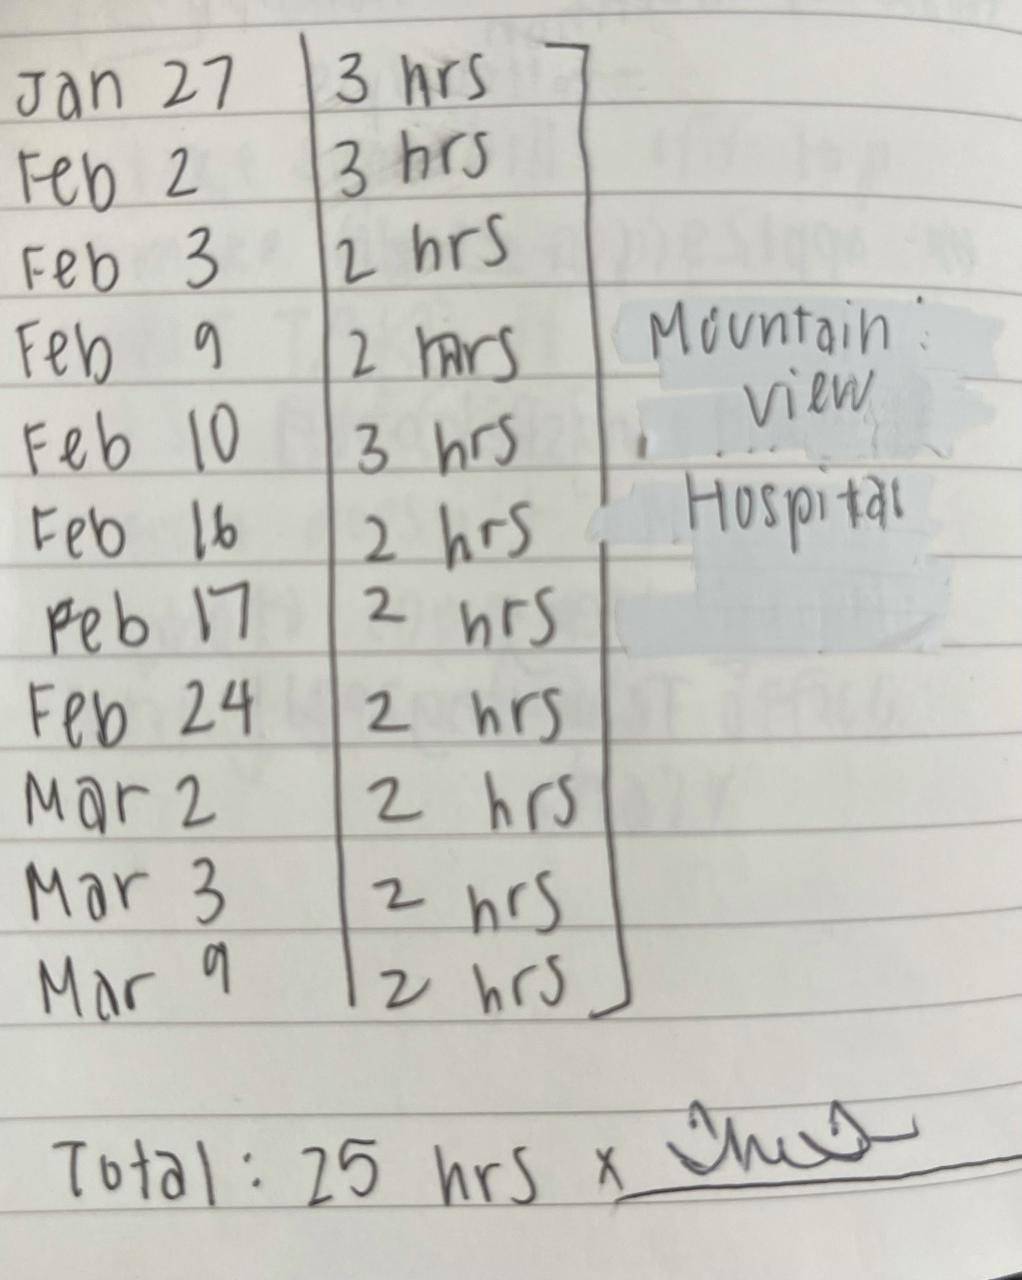 Jan 27 3 hrs
Feb 2 3 hrs
Feb 3 2 hrs
Feb 9 2 hrs
Feb 10 3 hrs
Feb 16 2 hrs
Feb 17 2 hrs
Feb 24 2 hrs
Mar 2 2 hrs
Mar 3 2 hrs
Mar 9 2 hrs
Mountain
view
Hospital
Total: 25 hrs x